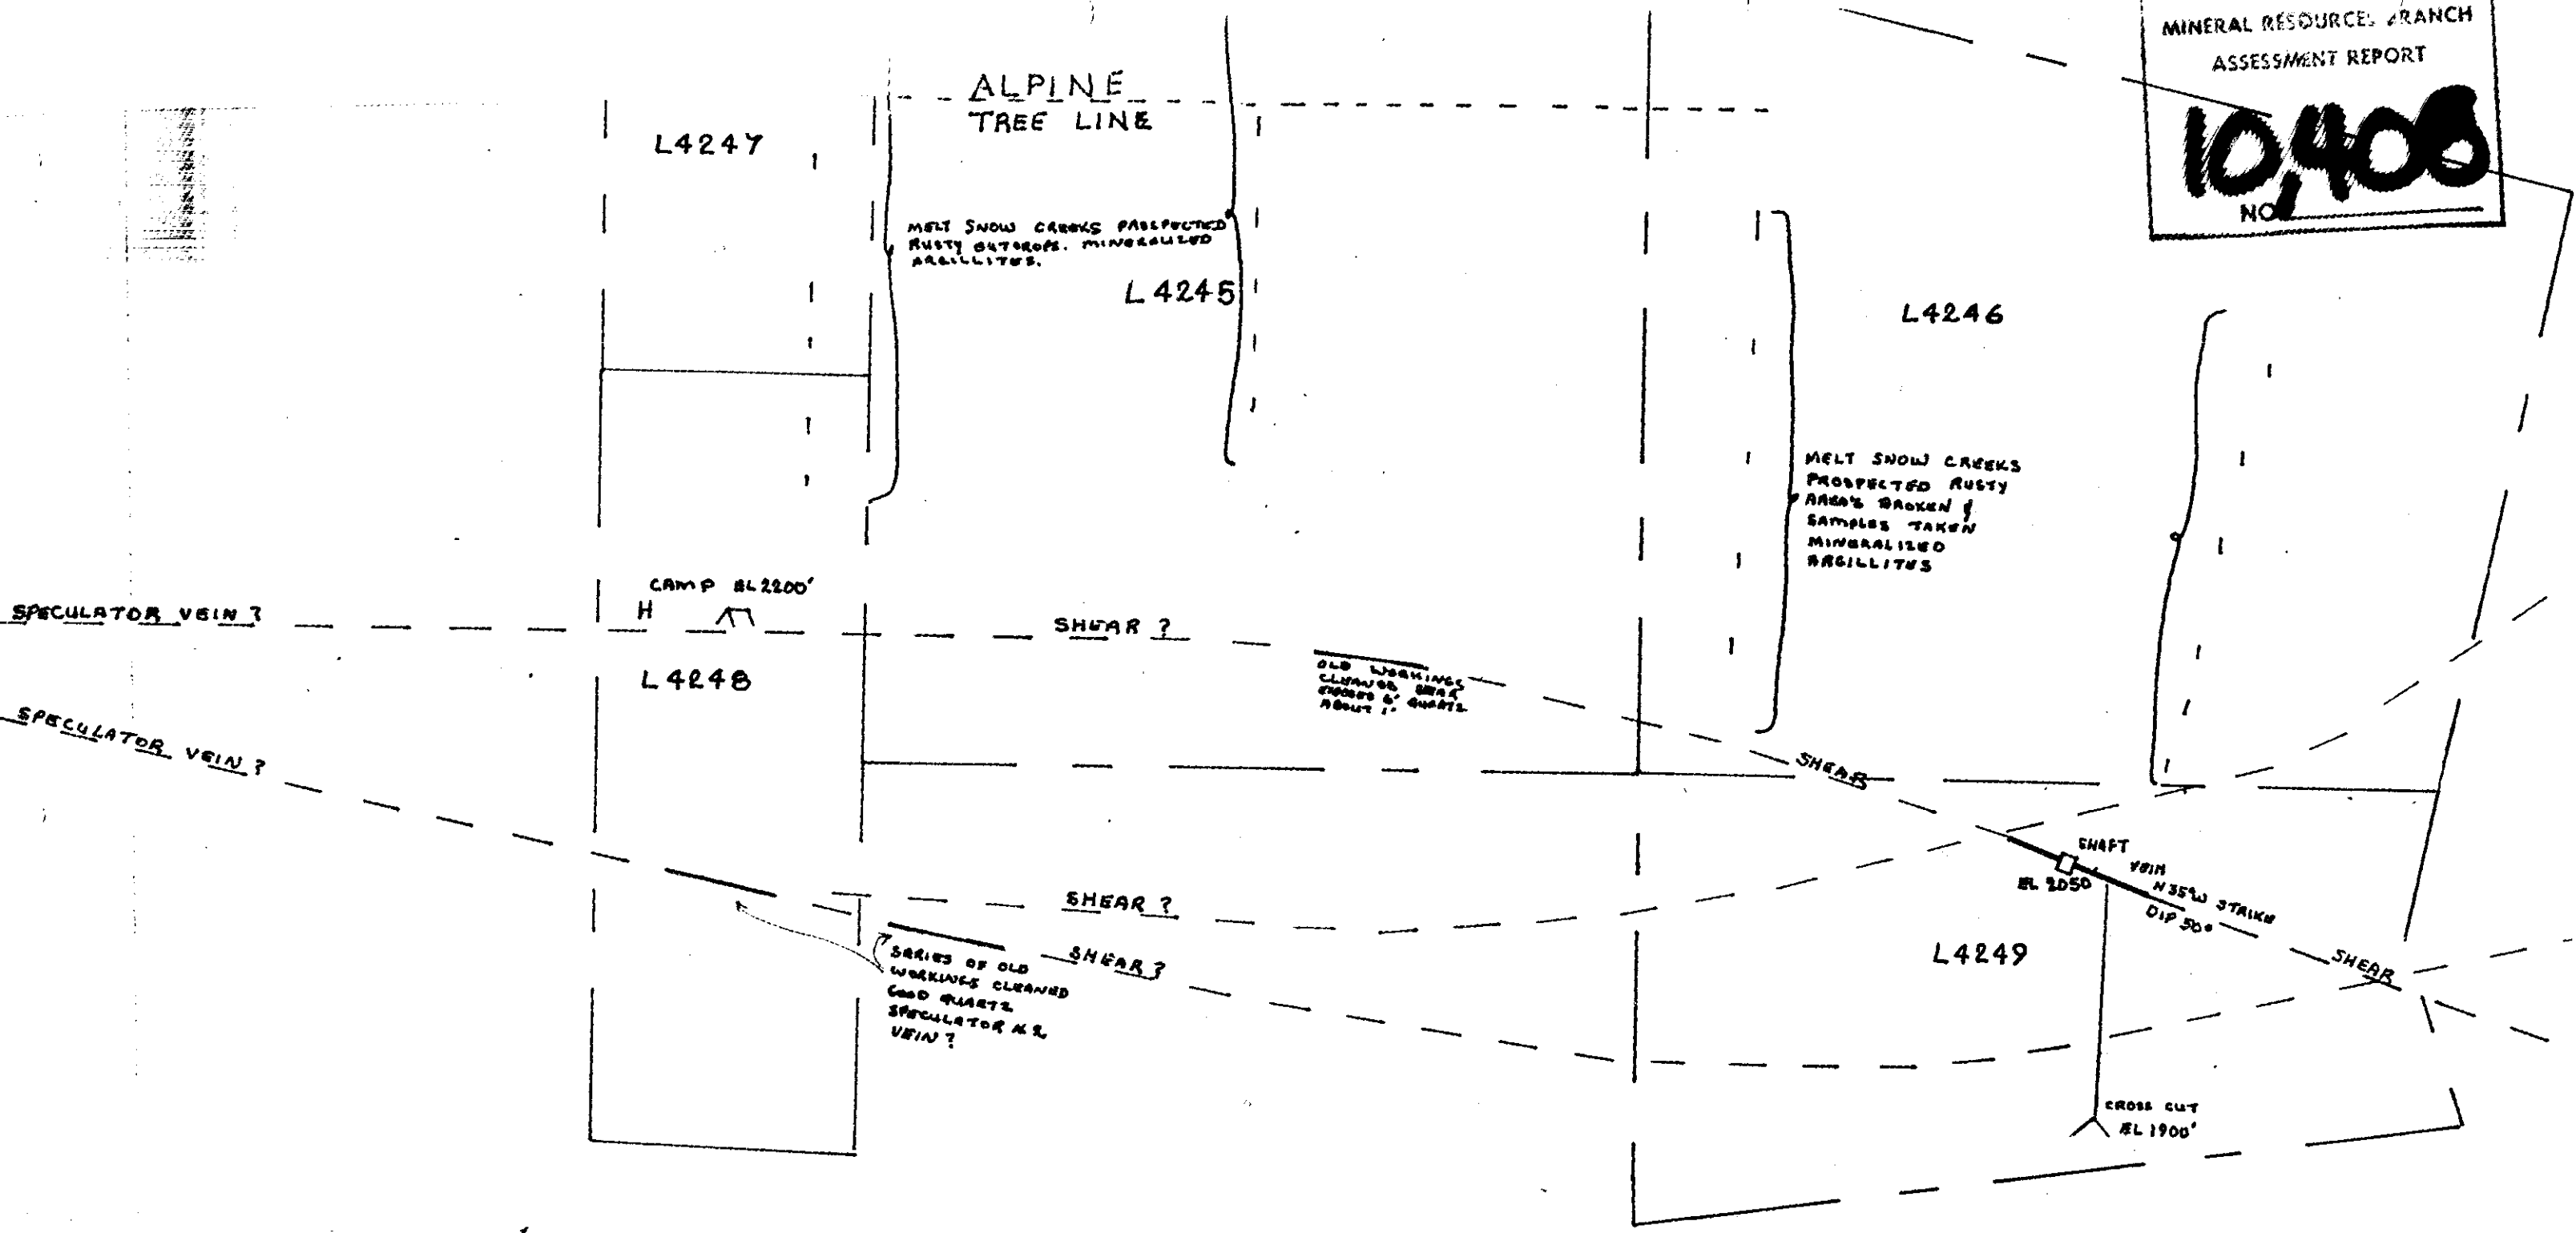 MINERAL RESOURCES BRANCH
ASSESSMENT REPORT
10,408
NO
ALPINE
TREE LINE
L4247
MELT SNOW CREEKS PROSPECTED
RUSTY OUTCROPS. MINERALIZED
ARGILLITES.
L4245
L4246
MELT SNOW CREEKS
PROSPECTED RUSTY
AREA'S BROKEN &
SAMPLES TAKEN
MINERALIZED
ARGILLITES
CAMP EL 2200'
H
SPECULATOR VEIN ?
SHEAR ?
OLD WORKINGS
CLEANED SHEAR
EXPOSED 6' QUARTZ
ABOUT 1'
L4248
SPECULATOR VEIN ?
SHEAR
SHAFT
EL 2050
VEIN
N 35° W STRIKE
DIP 50°
SHEAR ?
SHEAR ?
SERIES OF OLD
WORKINGS CLEANED
GOOD QUARTZ
SPECULATOR N 2
VEIN ?
L4249
SHEAR
CROSS CUT
EL 1900'